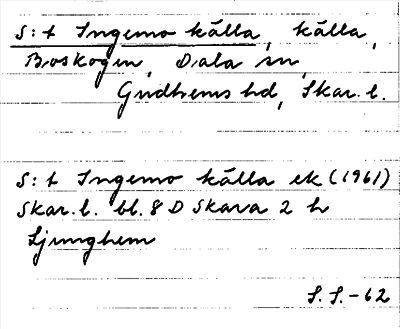 S:t Ingemo källa, källa,
Boskogen, Dala sn,
Gudhems hd, Skar. l.
S:t Ingemo källa ek (1961)
Skar. l. bl. 8 D Skara 2 h
Ljunghem
S. S. -62